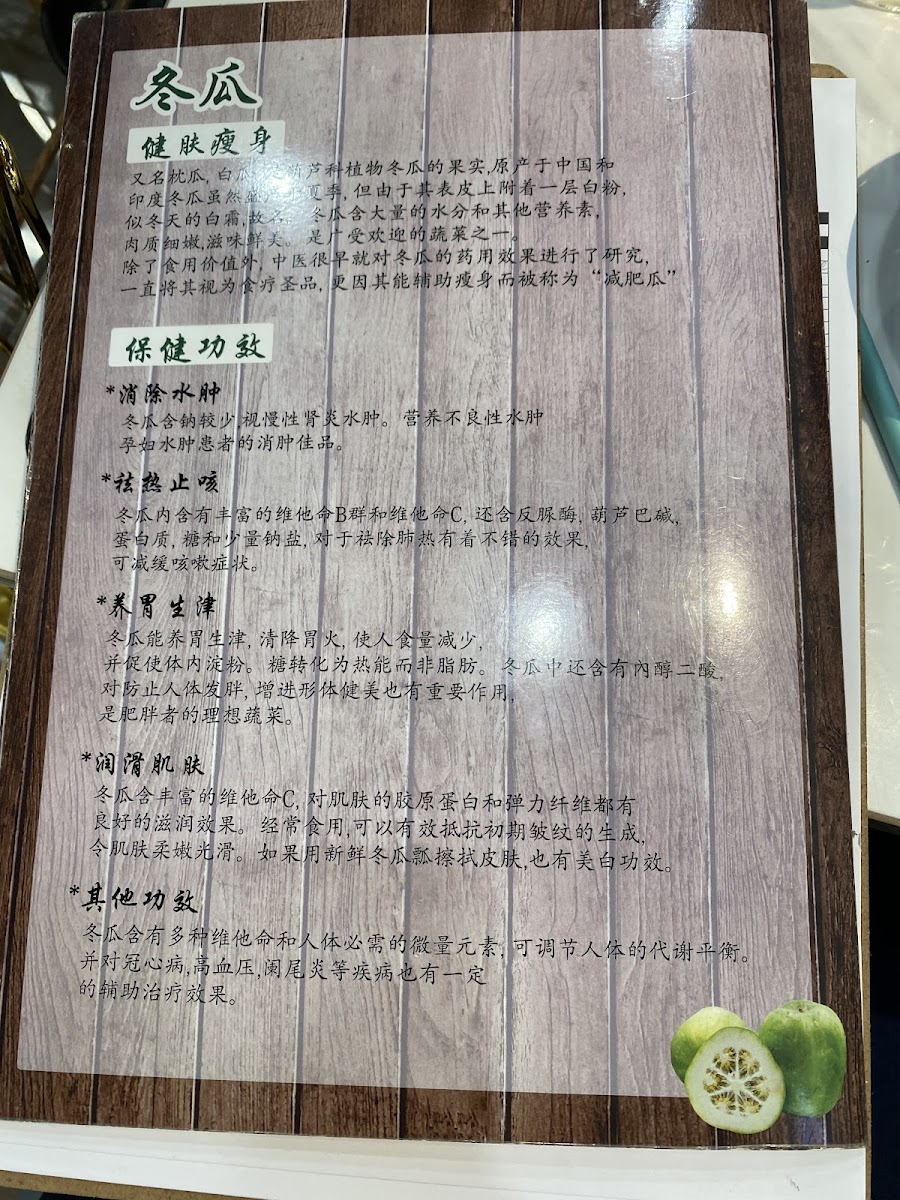 冬瓜
健肤瘦身
又名枕瓜, 白瓜 葫芦科植物冬瓜的果实,原产于中国和
印度冬瓜虽然盛 夏季, 但由于其表皮上附着一层白粉,
似冬天的白霜,故名。 冬瓜含大量的水分和其他营养素,
肉质细嫩,滋味鲜美。是广受欢迎的蔬菜之一。
除了食用价值外, 中医很早就对冬瓜的药用效果进行了研究,
一直将其视为食疗圣品, 更因其能辅助瘦身而被称为“减肥瓜”
保健功效
*消除水肿
冬瓜含钠较少,视慢性肾炎水肿。营养不良性水肿
孕妇水肿患者的消肿佳品。
*祛热止咳
冬瓜内含有丰富的维他命B群和维他命C, 还含反脲酶, 葫芦巴碱,
蛋白质, 糖和少量钠盐, 对于祛除肺热有着不错的效果,
可减缓咳嗽症状。
*养胃生津
冬瓜能养胃生津, 清降胃火, 使人食量减少,
并促使体内淀粉。糖转化为热能而非脂肪。冬瓜中还含有內醇二酸,
对防止人体发胖, 增进形体健美也有重要作用,
是肥胖者的理想蔬菜。
*润滑肌肤
冬瓜含丰富的维他命C, 对肌肤的胶原蛋白和弹力纤维都有
良好的滋润效果。经常食用,可以有效抵抗初期皱纹的生成,
令肌肤柔嫩光滑。如果用新鲜冬瓜瓢擦拭皮肤,也有美白功效。
*其他功效
冬瓜含有多种维他命和人体必需的微量元素, 可调节人体的代谢平衡。
并对冠心病,高血压,阑尾炎等疾病也有一定
的辅助治疗效果。